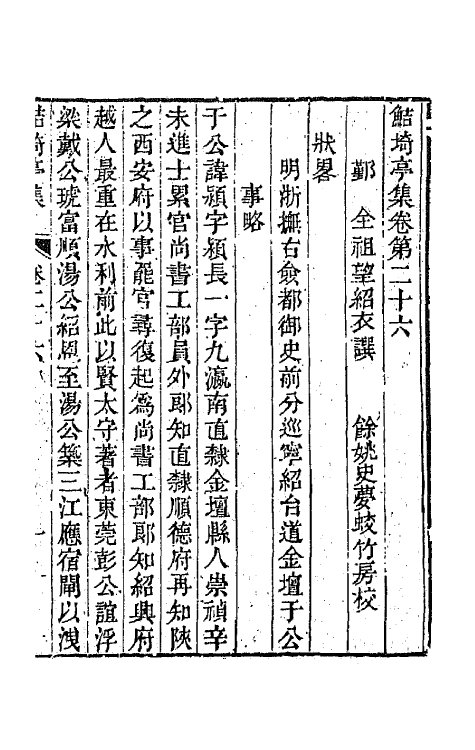 鮚埼亭集卷第二十六
鄞　全祖望紹衣譔　　餘姚史夢蛟竹房校
狀畧
明浙撫右僉都御史前分巡寧紹台道金壇于公
事略
于公諱潁字潁長一字九瀛南直隸金壇縣人崇禎辛
未進士累官尚書工部員外郎知直隸順德府再知陝
之西安府以事罷官尋復起爲尚書工部郎知紹興府
越人最重在水利前此以賢太守著者東莞彭公誼浮
梁戴公琥富順湯公紹恩至湯公築三江應宿閘以洩
鮚埼亭集　卷二十六